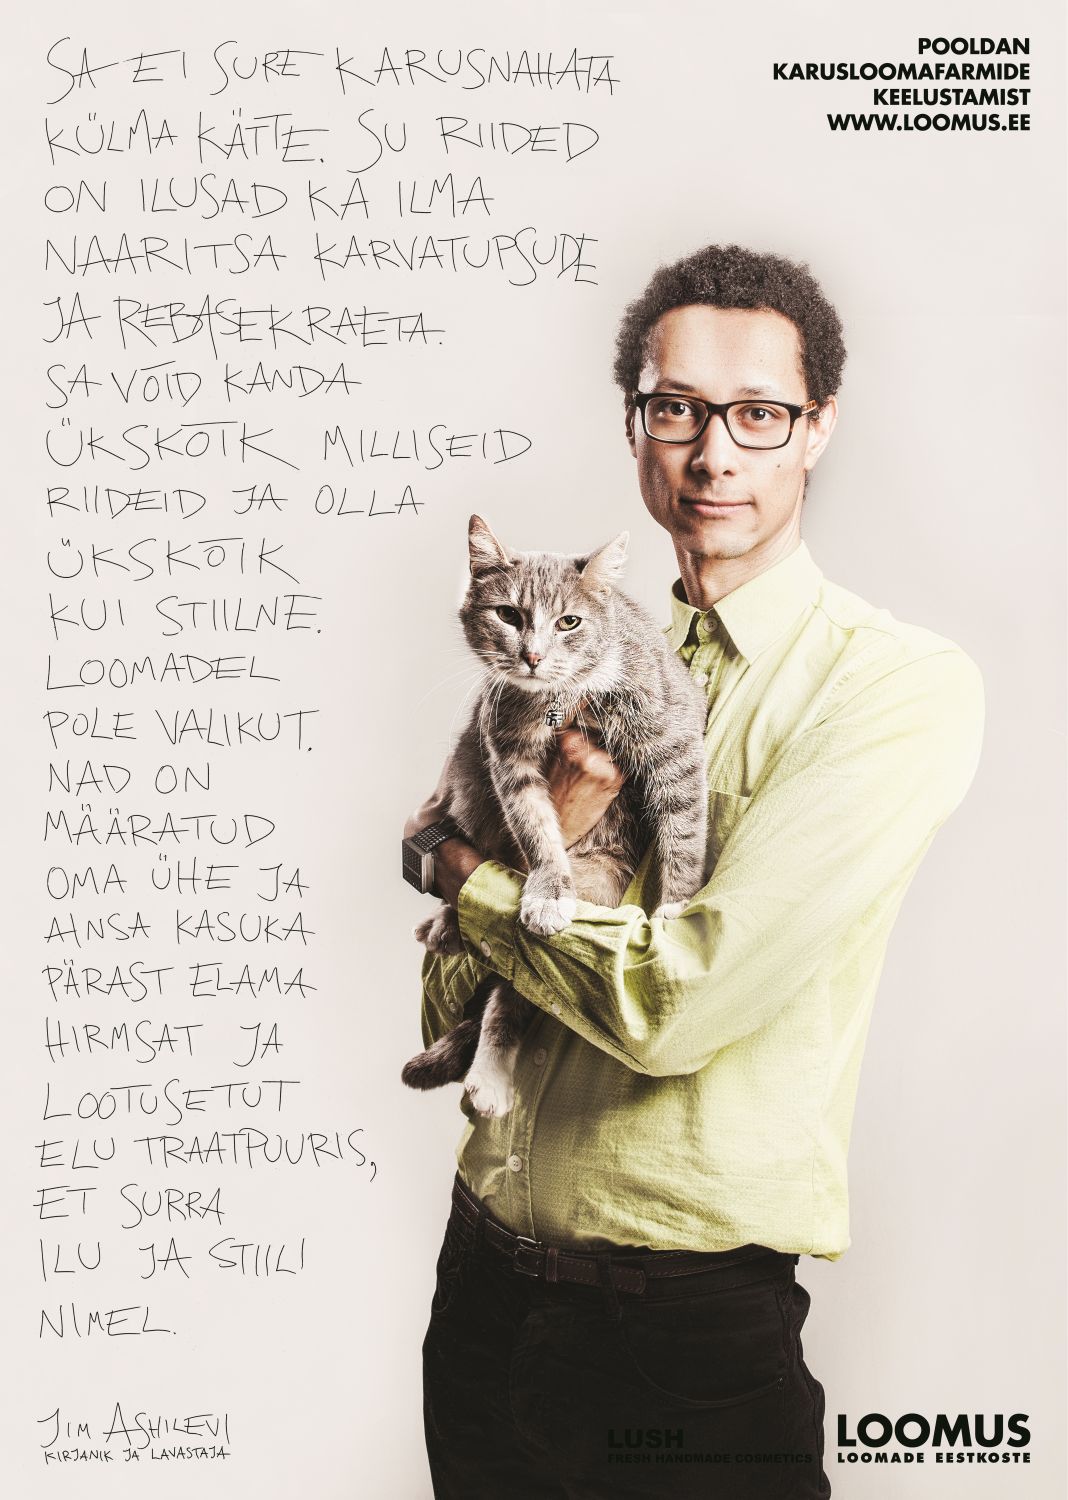 SA EI SURE KARUSNAHATA
KÜLMA KÄTTE. SU RIIDED
ON ILUSAD KA ILMA
NAARITSA KARVATUPSUDE
JA REBASEKRAETA.
SA VÕID KANDA
ÜKSKÕIK MILLISEID
RIIDEID JA OLLA
ÜKSKÕIK
KUI STIILNE.
LOOMADEL
POLE VALIKUT.
NAD ON
MÄÄRATUD
OMA ÜHE JA
AINSA KASUKA
PÄRAST ELAMA
HIRMSAT JA
LOOTUSETUT
ELU TRAATPUURIS,
ET SURRA
ILU JA STIILI
NIMEL.
JIM ASHILEVI
KIRJANIK JA LAVASTAJA
POOLDAN
KARUSLOOMAFARMIDE
KEELUSTAMIST
WWW.LOOMUS.EE
LUSH
FRESH HANDMADE COSMETICS
LOOMUS
LOOMADE EESTKOSTE